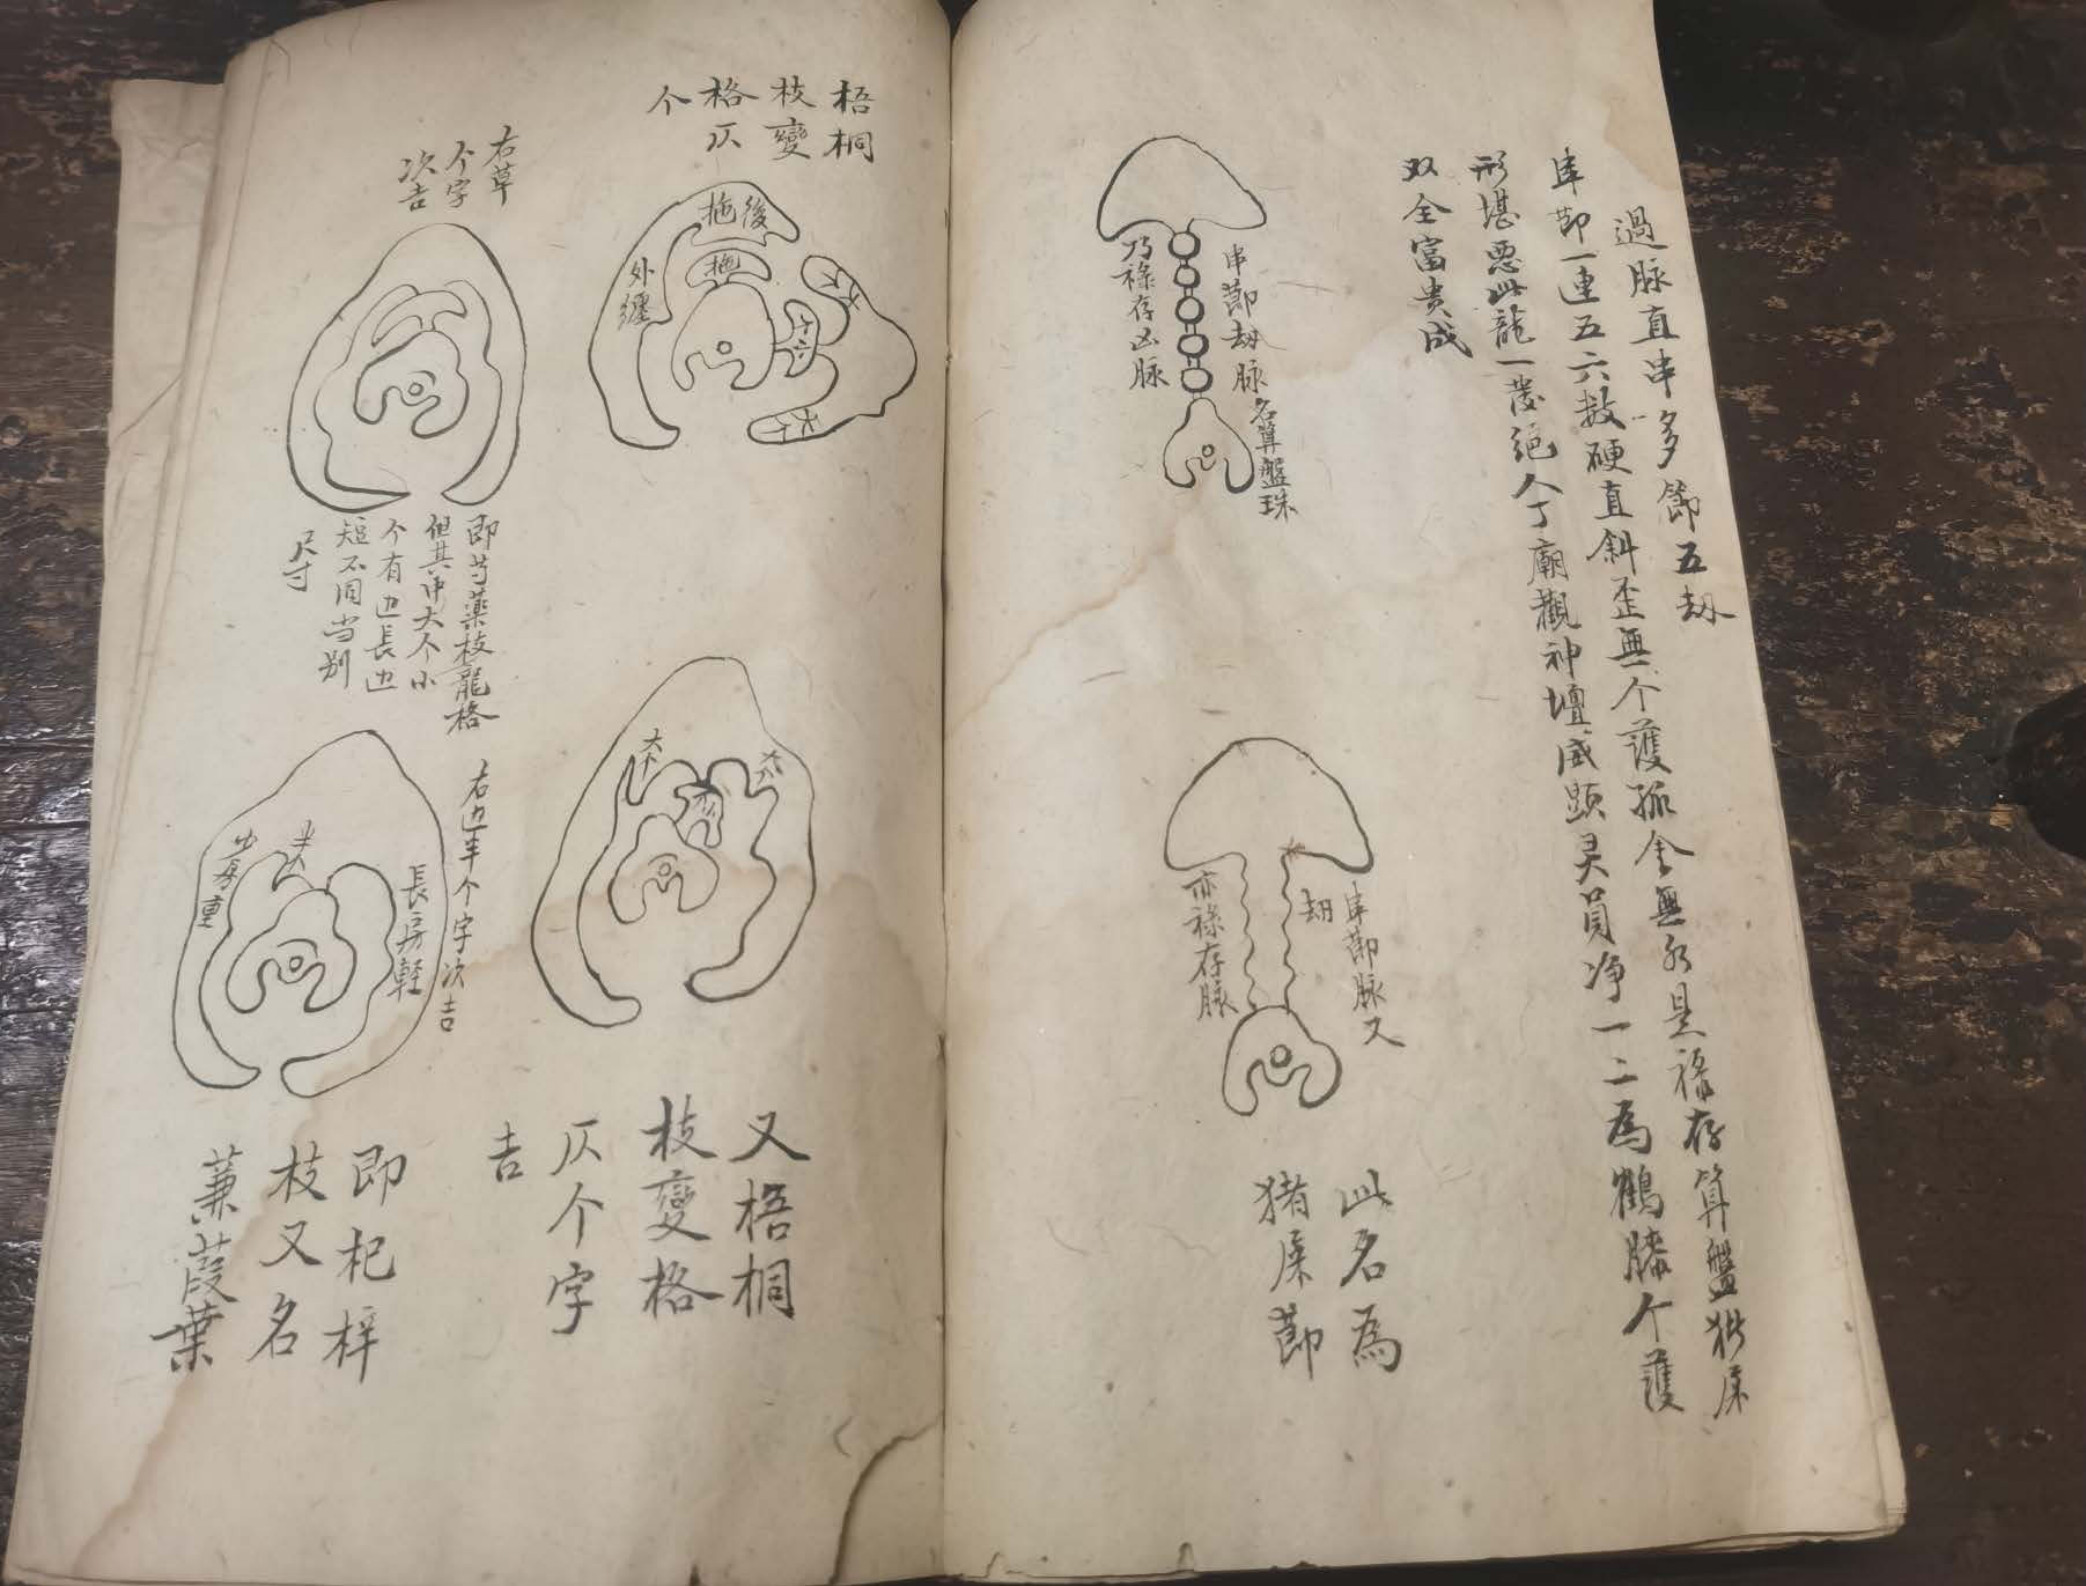 過脈直串多節五劫
串節一連五六数硬直斜歪無个護孤舍無水是祿存算盤猪屎
形堪悪此龍一发絕人丁廟觀神壇威顯灵員净一二為鶴膝个護
双全富貴成
串節劫脈
名算盤珠
乃祿存凶脈
串節脈又
劫
亦祿存脈
此名為
猪屎節
梧桐
枝變
格仄
个
後
拖
拖
外纏
右草
个字
次吉
即芍藥枝龍格
但其中大个小
个有边長边
短不同当别
尺寸
又梧桐
枝變格
仄个字
吉
右边半个字次吉
長房軽
即杞梓
枝又名
蒹葭葉